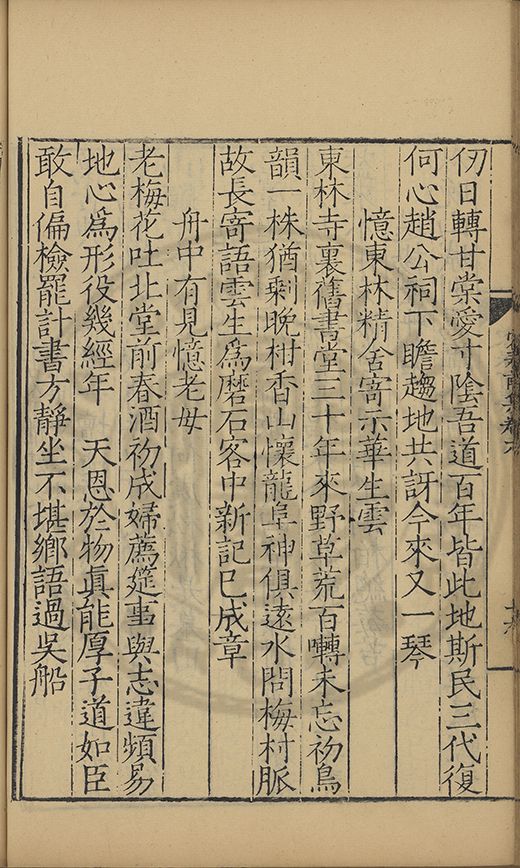 仞日轉甘棠愛寸陰吾道百年皆此地斯民三代復
何心趙公祠下瞻趨地共訝今來又一琴
憶東林精舍寄示華生雲
東林寺裏舊書堂三十年來野草荒百囀未忘初鳥
韻一株猶剩晚柑香山懷龍阜神俱遠水問梅村脈
故長寄語雲生爲磨石客中新記已成章
舟中有見憶老母
老梅花吐北堂前春酒初成婦薦筵事與志違頻易
地心爲形役幾經年 天恩於物眞能厚子道如臣
敢自偏檢罷計書方靜坐不堪鄉語過吳船